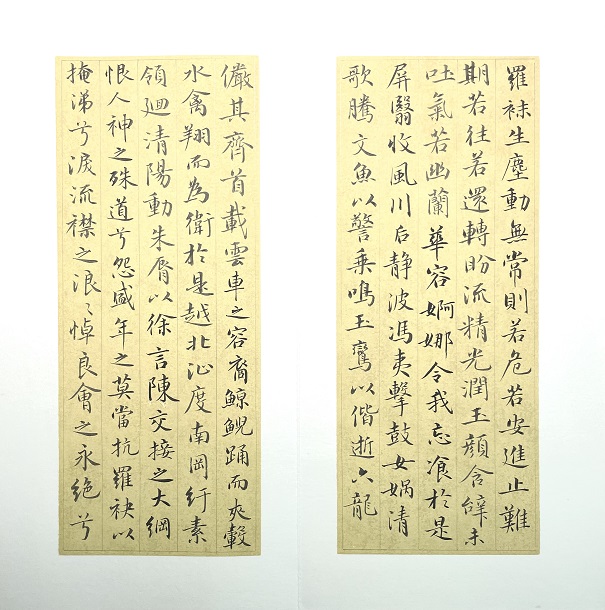 羅袜生塵動無常則若危若安進止難
期若往若還轉盼流精光潤玉顏含辭未
吐氣若幽蘭華容婀娜令我忘飡於是
屏翳收風川后静波馮夷擊鼓女媧清
歌騰文魚以警乘鳴玉鸞以偕逝六龍
儼其齊首載雲車之容裔鯨鯢踊而夾轂
水禽翔而為衛於是越北沚度南岡紆素
領迴清陽動朱脣以徐言陳交接之大綱
恨人神之殊道兮怨盛年之莫當抗羅袂以
掩涕兮淚流襟之浪〻悼良會之永絕兮